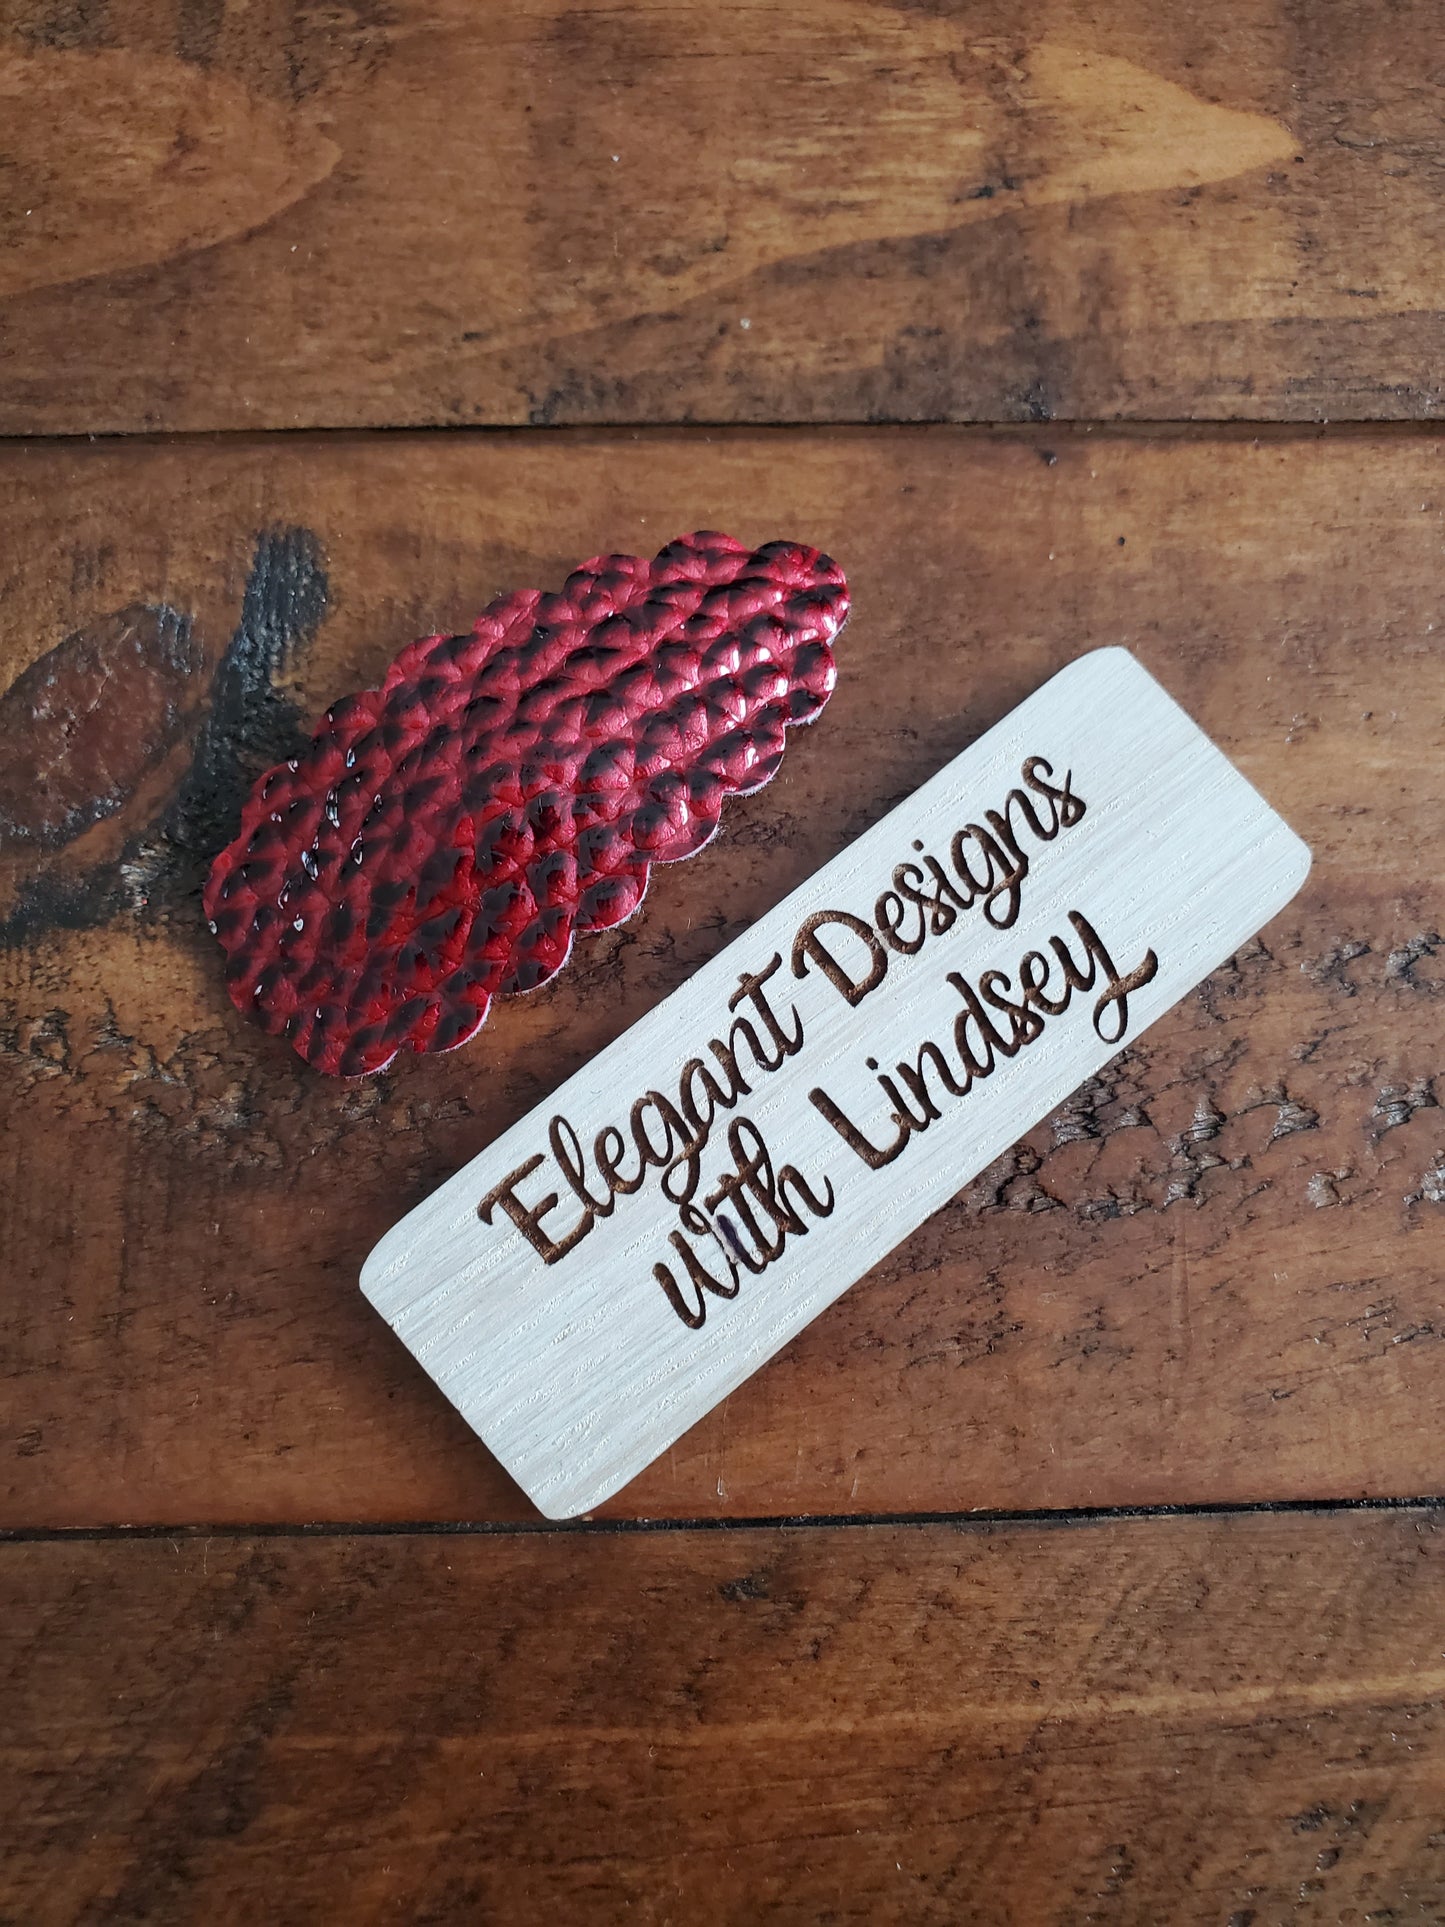 Elegant Designs
with Lindsey